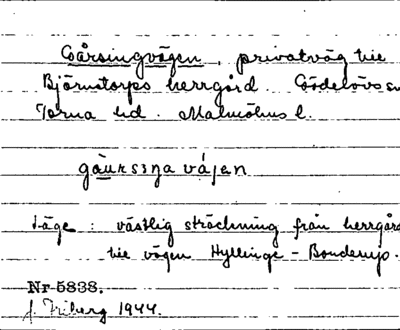 Gårsingvägen, privatväg till
Björnstorps herrgård. Gödelövs sn
Torna hd. Malmöhus l.
gåursiŋa vájen
Läge: västlig sträckning från herrgård
till vägen Hyllinge - Bonderup.
Nr 5838.
J. Friberg 1944.